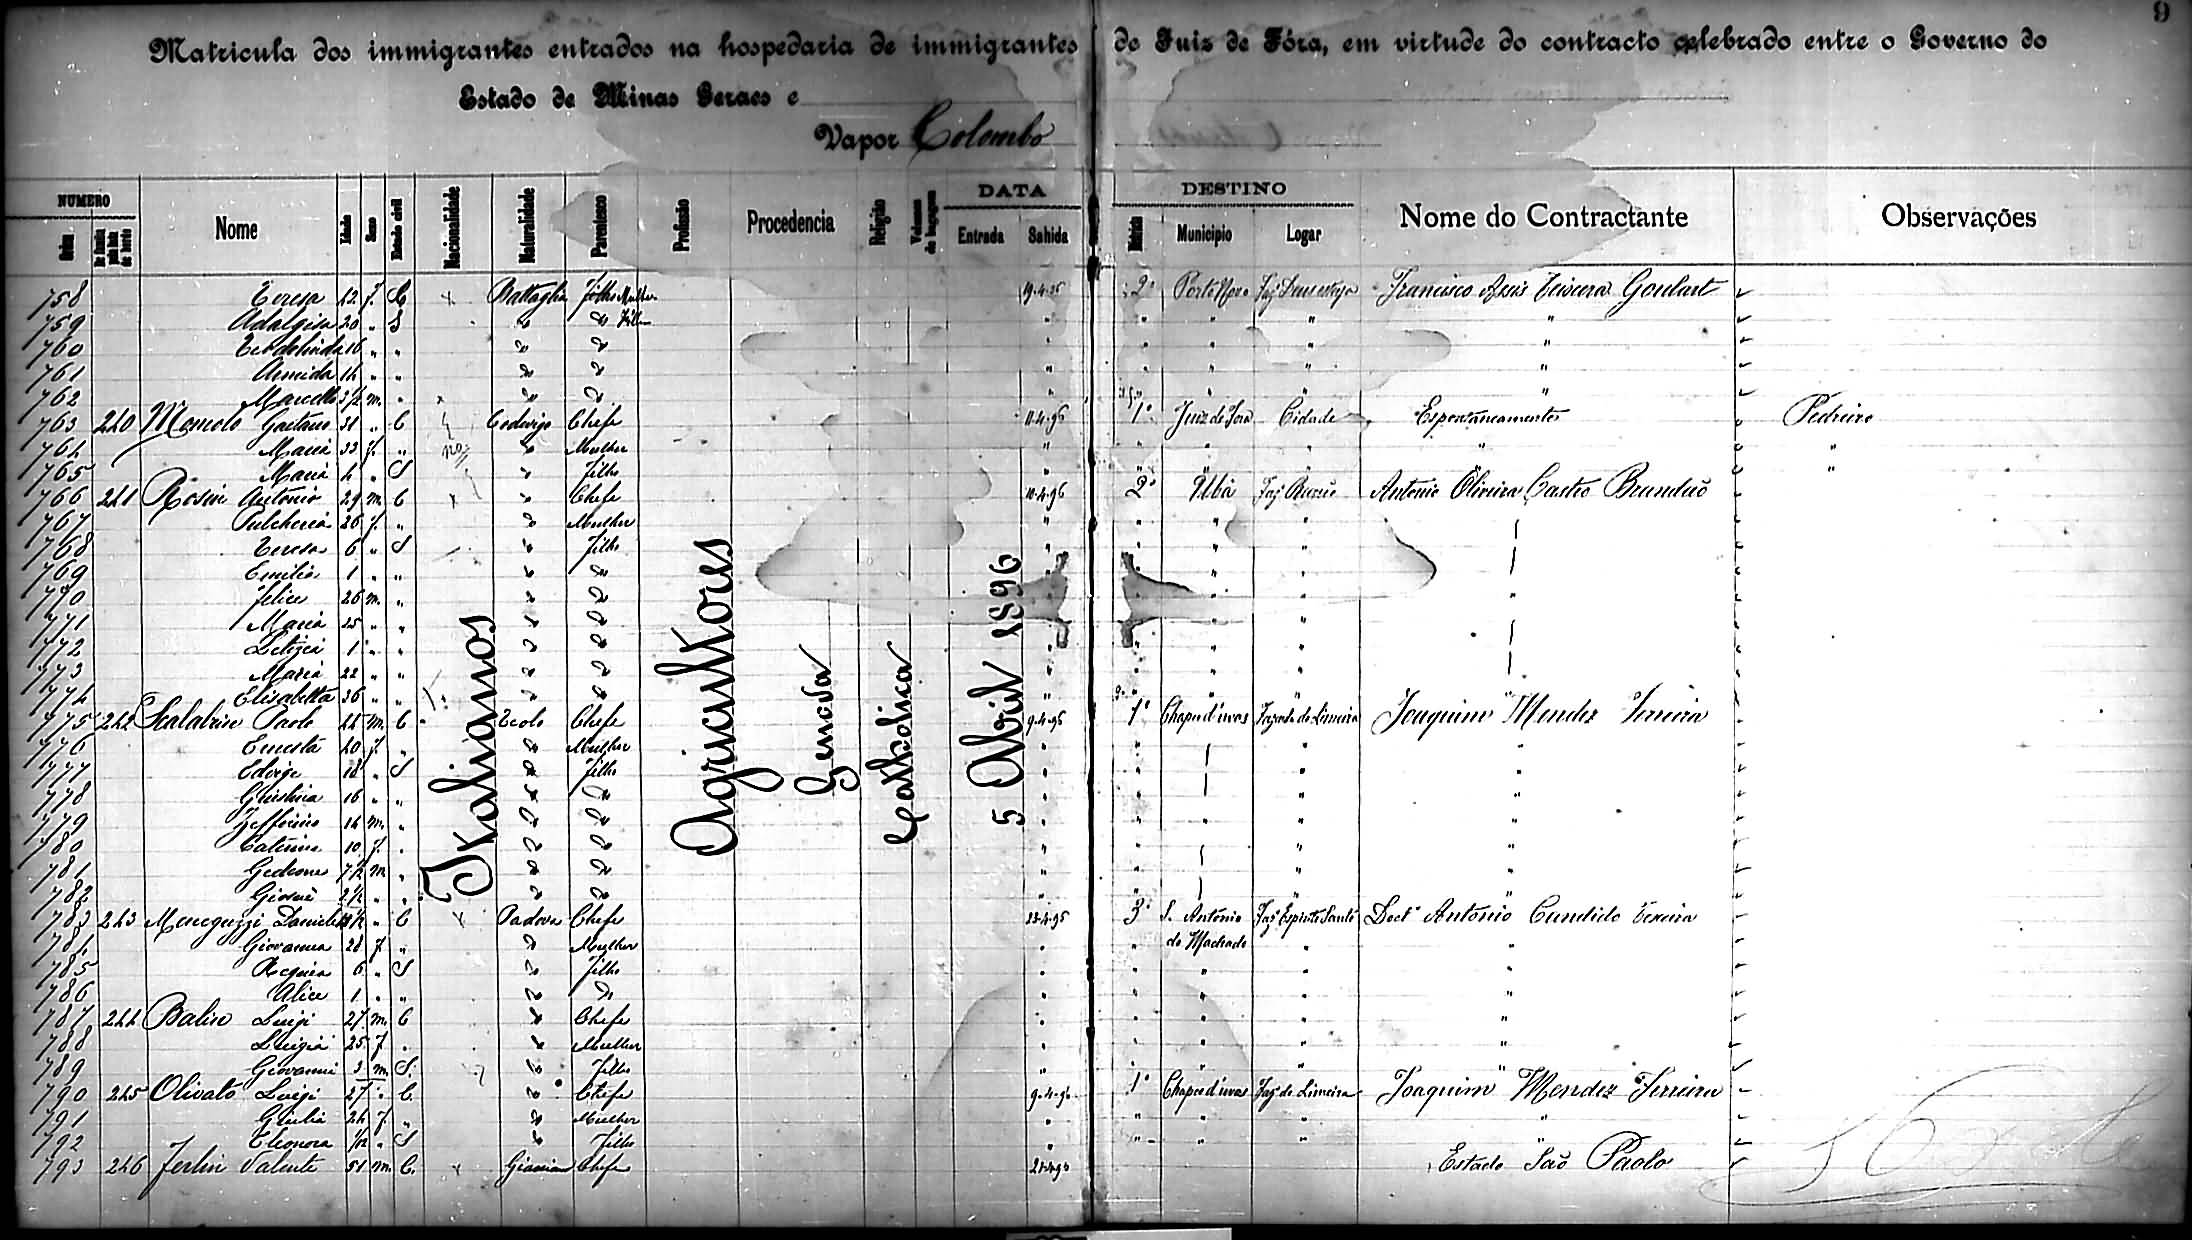 9
Matricula dos immigrantes entrados na hospedaria de immigrantes de Juiz de Fóra, em virtude do contracto celebrado entre o Governo do
Estado de Minas Geraes e
Vapor Colombo
NUMERO Nome Idade Sexo Estado civil Nacionalidade Naturalidade Parentesco Profissão Procedencia Religião Volumes de bagagem DATA Entrada Sahida DESTINO Municipio Logar Nome do Contractante Observações
Italianos Agricultores Genova Catholica 5 Abril 1896
758 Teresa 42 f. C Battaglia Filho Mulher 19-4-96 2ª Porto Novo Francisco Assis Teixeira Goulart
759 Adalgisa 20 " S " " Filha " " " " "
760 16 " " " " " " " " "
761 Armida 14 " " " " " " " " "
762 Marcello 3/12 m. " " " " " " " "
763 240 Gaetano 31 " C Chefe 11-4-96 1ª Juiz de Fora Cidade Espontaneamente Pedreiro
764 Maria 33 f. " " Mulher " " " " " "
765 Maria 4 " S " Filho " " " " " "
766 241 Rosini Antonio 29 m. C " Chefe 10-4-96 2ª Ubá Antonio Oliveira Castro Brandão
767 Pulcheria 26 f. " " Mulher " " " "
768 Teresa 6 " S " Filho " " " "
769 Emilia 1 " " " " " " " "
770 Felice 26 m. " " " " " " " "
771 Maria 25 " " " " " " " "
772 Letizia 1 " " " " " " " "
773 Maria 22 " " " " " " " "
774 Elisabetta 36 " " " " " " " " "
775 242 Scalabrin Paolo 44 m. C Teolo Chefe 9-4-96 1ª Chapeu d'uvas Fazenda de Limeira Joaquim Mendes Ferreira
776 Ernesta 40 f. " " Mulher " " " "
777 Edvige 18 " S " Filho " " " "
778 Giustina 16 " " " " " " " "
779 Zefferino 14 m. " " " " " " " "
780 Caterina 10 f. " " " " " " "
781 Gedeone 7 1/2 m. " " " " " " "
782 Giosuè 2 1/2 " " " " " " " "
783 243 Meneguzzi Daniele " C Padova Chefe 23-4-96 3ª S. Antonio do Machado Faz Espirito Santo Doctr Antonio Candido Teixeira
784 Giovanna 28 f. " " Mulher " " " "
785 6 " S " Filho " " " " "
786 Alice 1 " " " " " " " " "
787 244 Luigi 27 m. C " Chefe " " " " "
788 Luigia 25 f. " " Mulher " " " " "
789 Giovanni 3 m. S. " Filho " " " " "
790 245 Olivato Luigi 27 " C. " Chefe 9-4-96 1ª Chapeu d'uvas Faz de Limeira Joaquim Mendes Ferreira
791 Giulia 24 f. " " Mulher " " " " "
792 Eleonora " S " Filho " " " " "
793 246 Ferlin Valente 51 m. C. Chefe Estado São Paolo